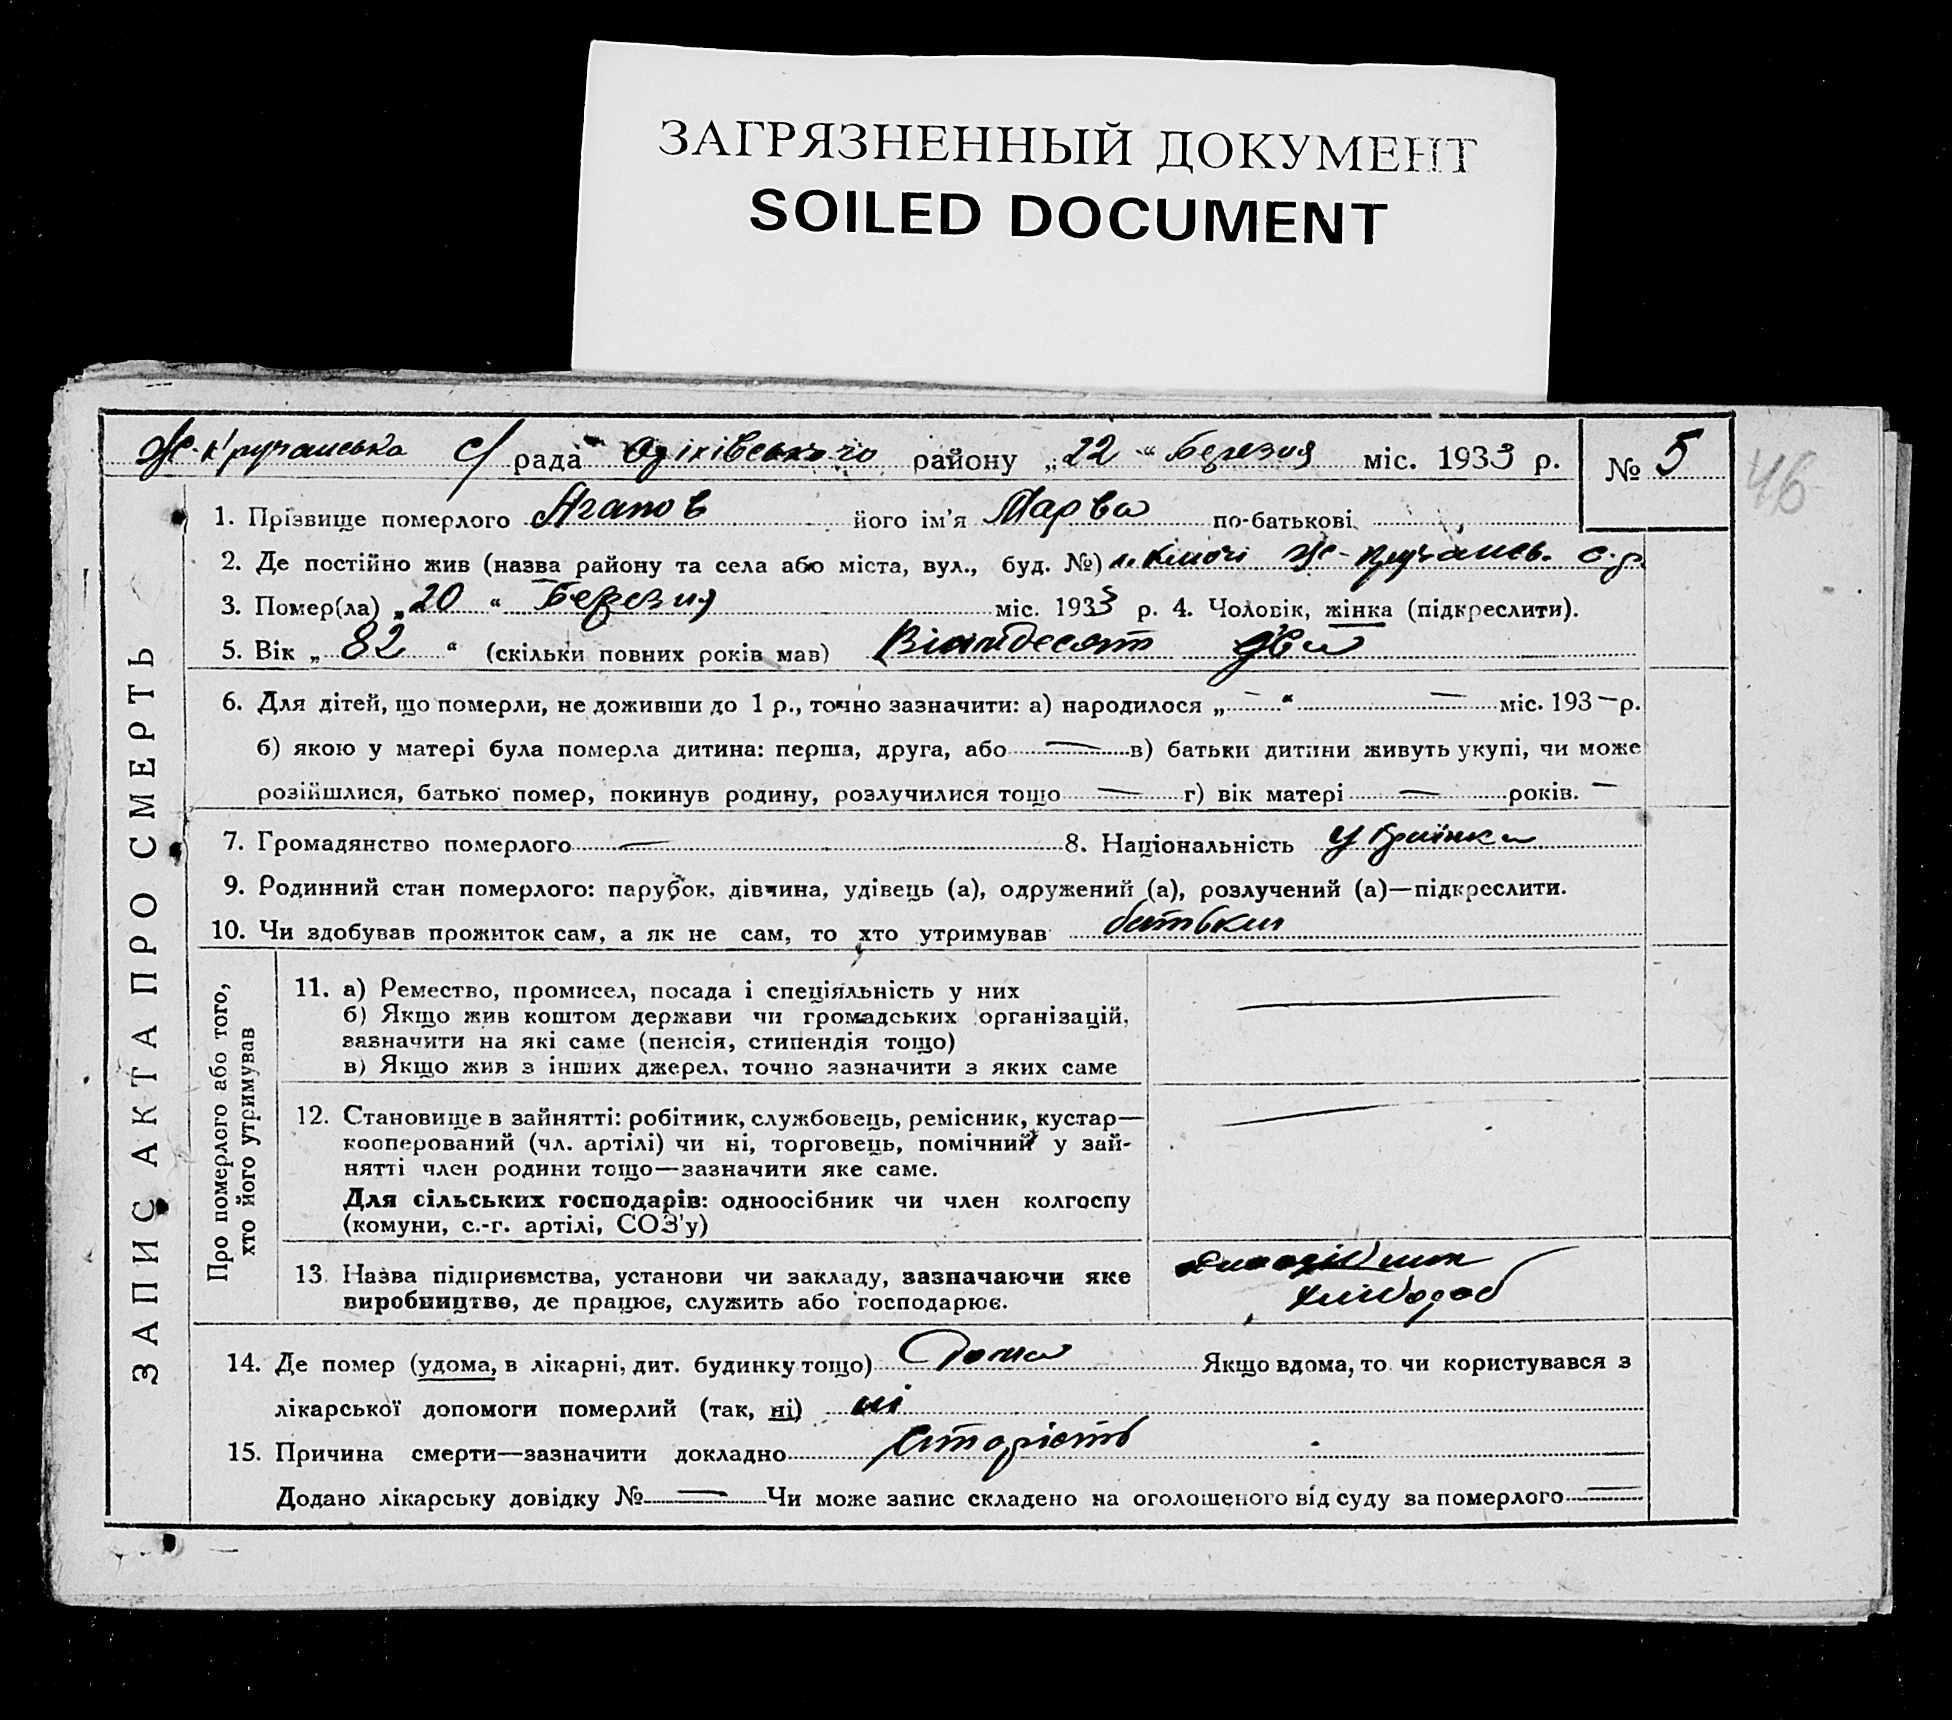 ЗАГРЯЗНЕННЫЙ ДОКУМЕНТ
SOILED DOCUMENT
Ж-Кручанська с/ рада Оріхівського району „22“ Березня міс. 1933 р. № 5
46
ЗАПИС АКТА ПРО СМЕРТЬ
1. Прізвище померлого Агапов його ім'я Марва по-батькові
2. Де постійно жив (назва району та села або міста, вул., буд. №) Ж- Кручансь. с.р.
3. Помер(ла) „20“ Березня міс. 1933 р. 4. Чоловік, жінка (підкреслити).
5. Вік „82“ (скільки повних років мав) Вісімдесят два
6. Для дітей, що померли, не доживши до 1 р., точно зазначити: а) народилося „—“ — міс. 193—р.
б) якою у матері була померла дитина: перша, друга, або — в) батьки дитини живуть укупі, чи може
розійшлися, батько помер, покинув родину, розлучилися тощо — г) вік матері — років. —
7. Громадянство померлого — 8. Національність Українка
9. Родинний стан померлого: парубок, дівчина, удівець (а), одружений (а), розлучений (а)—підкреслити.
10. Чи здобував прожиток сам, а як не сам, то хто утримував батьки
Про померлого або того,
хто його утримував
11. а) Ремество, промисел, посада і спеціяльність у них —
б) Якщо жив коштом держави чи громадських організацій,
зазначити на які саме (пенсія, стипендія тощо)
в) Якщо жив з інших джерел, точно зазначити з яких саме
12. Становище в зайнятті: робітник, службовець, ремісник, кустар— —
кооперований (чл. артілі) чи ні, торговець, помічний у зай-
нятті член родини тощо—зазначити яке саме.
Для сільських господарів: одноосібник чи член колгоспу
(комуни, с.-г. артілі, СОЗ'у)
13. Назва підприємства, установи чи закладу, зазначаючи яке одноосібник
виробництво, де працює, служить або господарює. хлібороб
14. Де помер (удома, в лікарні, дит. будинку тощо) Дома Якщо вдома, то чи користувався з
лікарської допомоги померлий (так, ні) ні
15. Причина смерти—зазначити докладно старість
Додано лікарську довідку № — Чи може запис складено на оголошеного від суду за померлого —